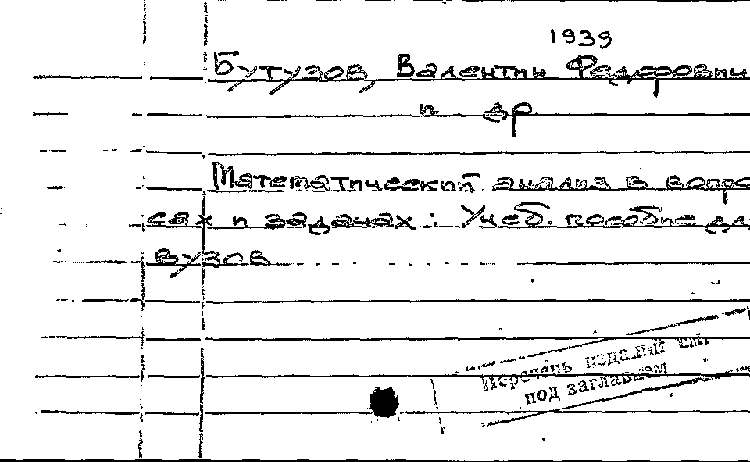 1939
Бутузов, Валентин Федорович
и др
Математический анализ в вопро
сах и задачах: Учеб. пособие для
вузов
Перечень изданий см.
под заглавием